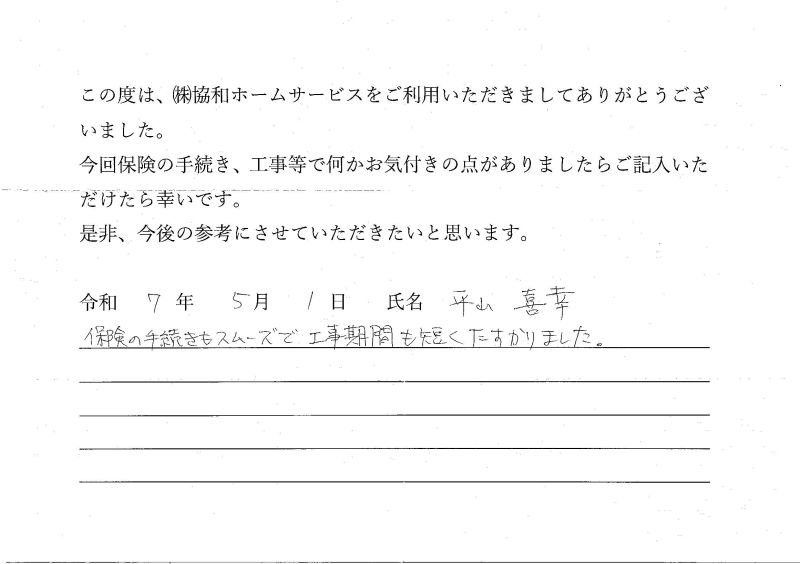 この度は、㈱協和ホームサービスをご利用いただきましてありがとうござ
いました。
今回保険の手続き、工事等で何かお気付きの点がありましたらご記入いた
だけたら幸いです。
是非、今後の参考にさせていただきたいと思います。
令和 7 年 5 月 1 日 氏名 平山 喜幸
保険の手続きもスムーズで工事期間も短くたすかりました。